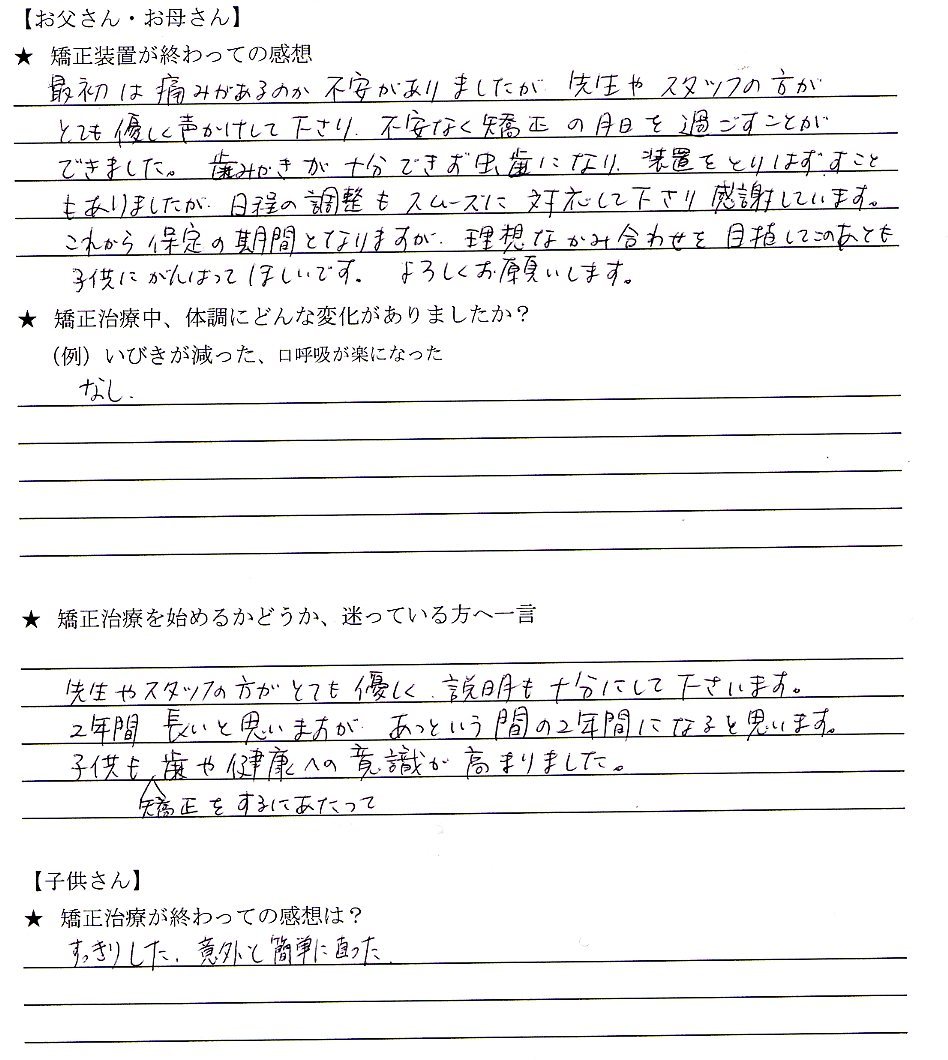 【お父さん・お母さん】
★ 矯正装置が終わっての感想
最初は痛みがあるのか不安がありましたが、先生やスタッフの方が
とても優しく声かけして下さり、不安なく矯正の月日を過ごすことが
できました。歯みがきが十分できず虫歯になり、装置をとりはずすこと
もありましたが、日程の調整もスムーズに対応して下さり感謝しています。
これから保定の期間となりますが、理想なかみ合わせを目指してこのあとも
子供にがんばってほしいです。よろしくお願いします。
★ 矯正治療中、体調にどんな変化がありましたか?
(例) いびきが減った、口呼吸が楽になった
なし.
★ 矯正治療を始めるかどうか、迷っている方へ一言
先生やスタッフの方がとても優しく、説明も十分にして下さいます。
2年間 長いと思いますが、あっという間の2年間になると思います。
子供も歯や健康への意識が高まりました。
矯正をするにあたって
【子供さん】
★ 矯正治療が終わっての感想は?
すっきりした、意外と簡単に直った.